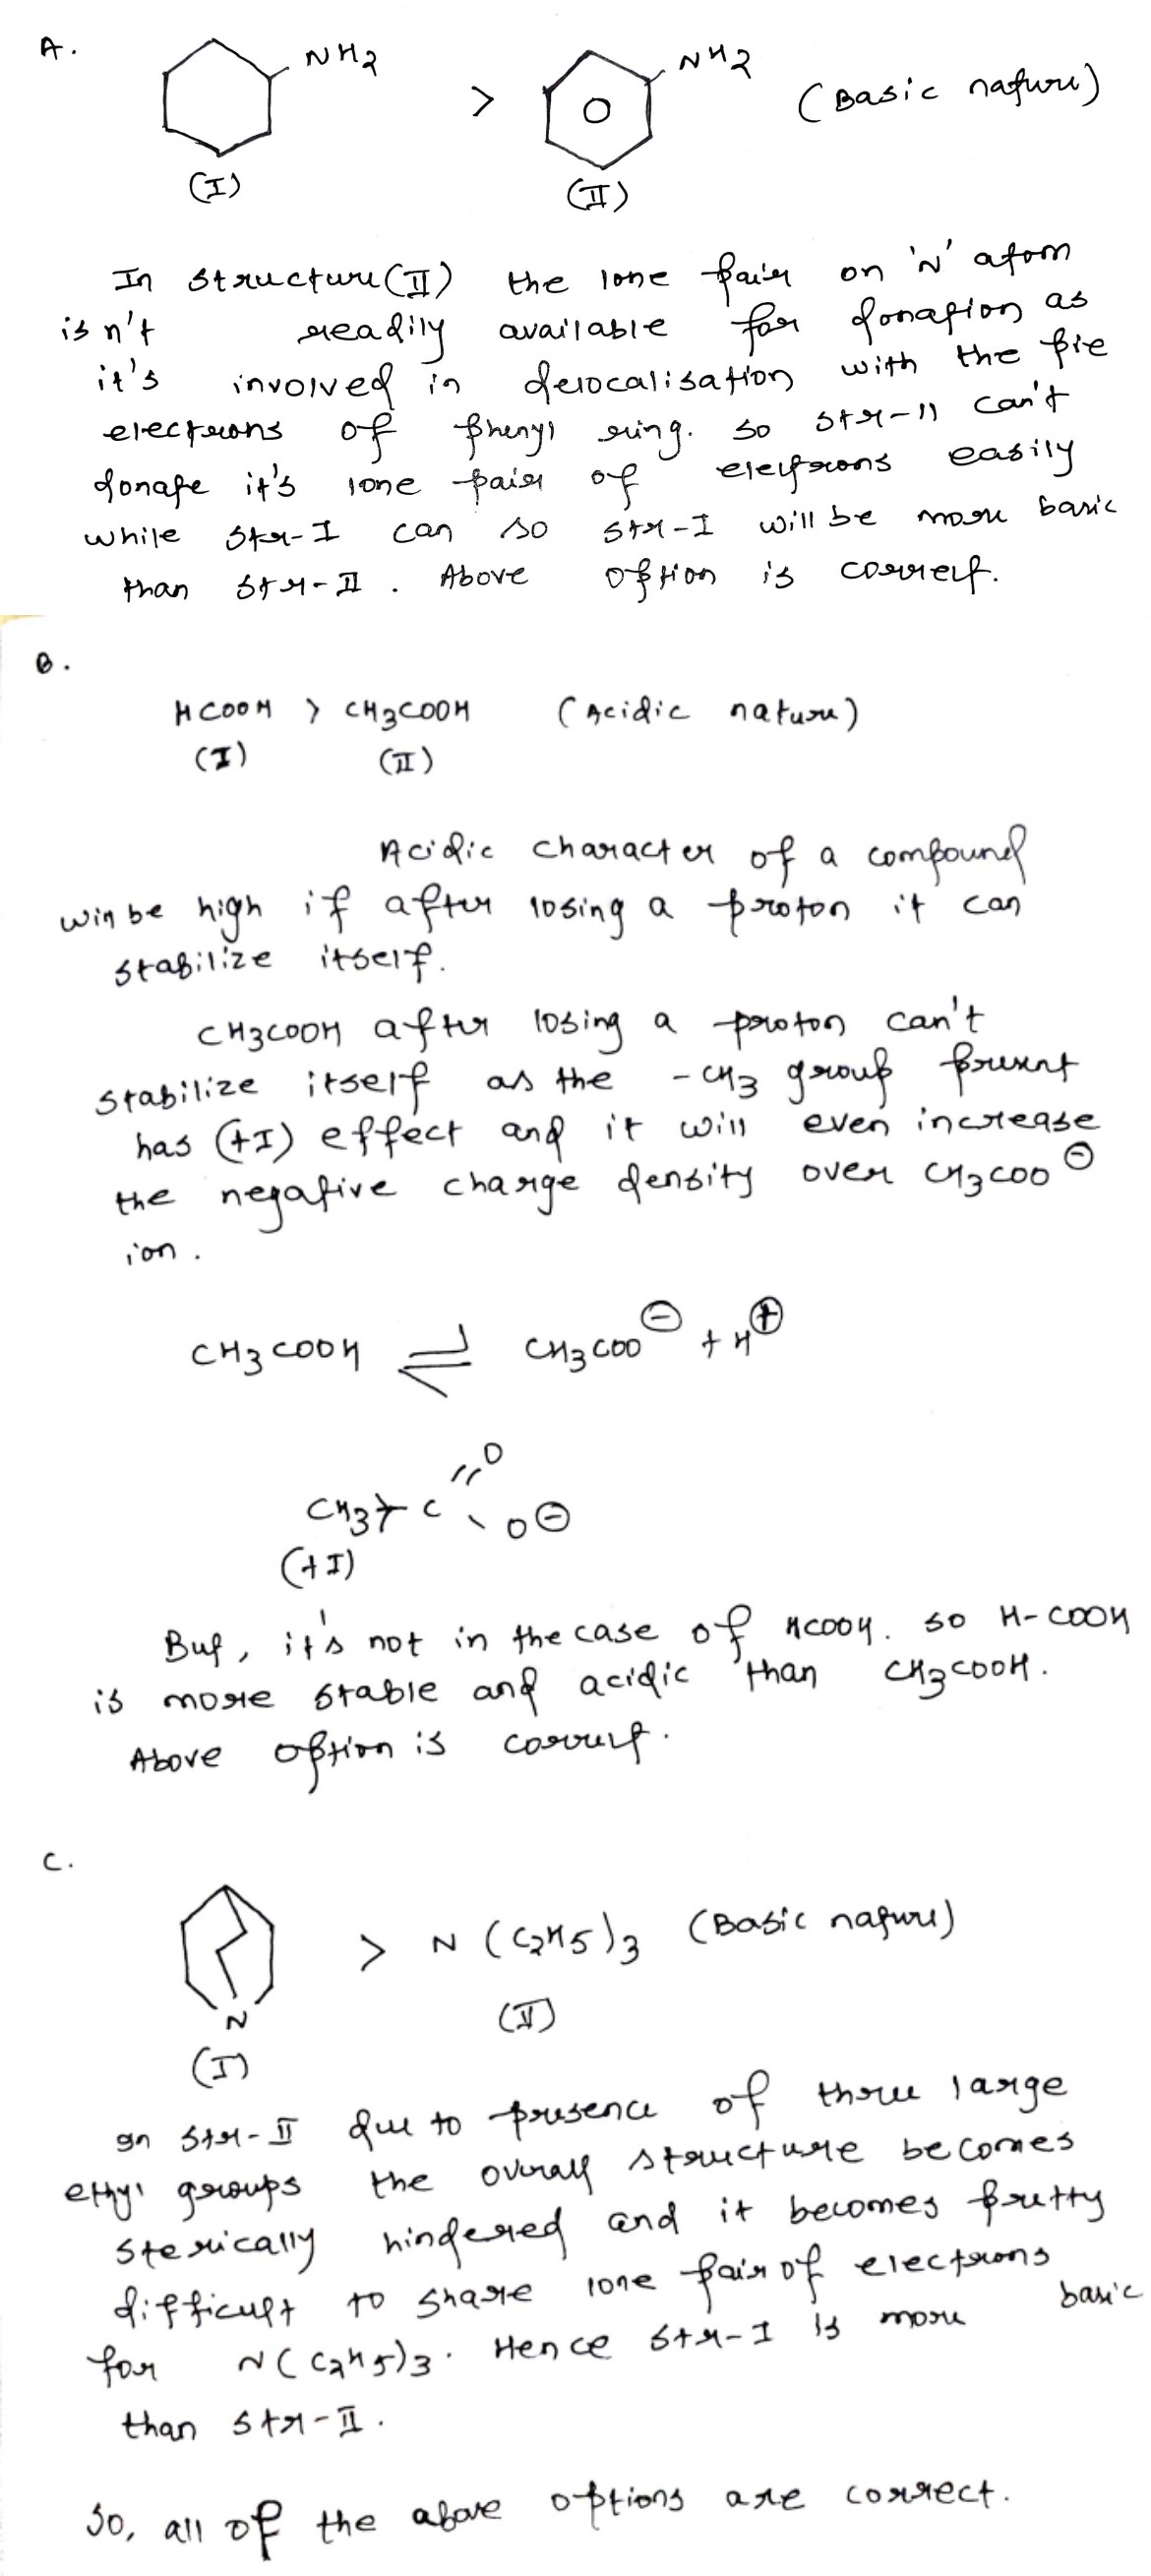 A.
NH2 > NH2 (Basic nature)
(I) (II)
In structure (II) the lone pair on 'N' atom
isn't readily available for donation as
it's involved in delocalisation with the pie
electrons of phenyl ring. so str-II can't
donate it's lone pair of electrons easily
while str-I can so str-I will be more basic
than str-II. Above option is correct.
B.
HCOOH > CH3COOH (Acidic nature)
(I) (II)
Acidic character of a compound
will be high if after losing a proton it can
stabilize itself.
CH3COOH after losing a proton can't
stabilize itself as the -CH3 group present
has (+I) effect and it will even increase
the negative charge density over CH3COO⊖
ion.
CH3COOH ⇌ CH3COO⊖ + H⊕
O
CH3 C O⊖
(+I)
But, it's not in the case of HCOOH. so H-COOH
is more stable and acidic than CH3COOH.
Above option is correct.
C.
N > N(C2H5)3 (Basic nature)
(I) (II)
In str-II due to presence of three large
ethyl groups the overall structure becomes
sterically hindered and it becomes pretty
difficult to share lone pair of electrons
for N(C2H5)3. Hence str-I is more basic
than str-II.
So, all of the above options are correct.